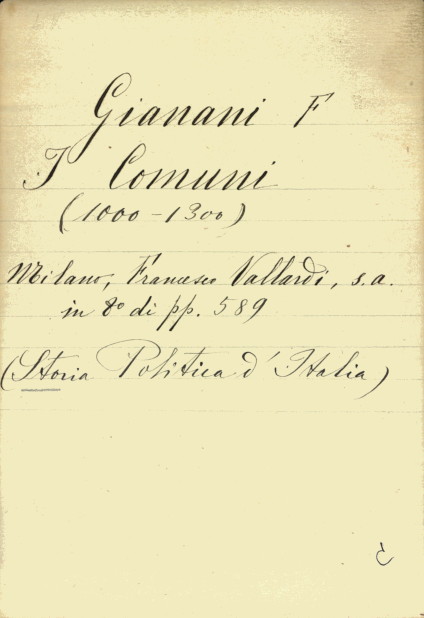 Gianani F
I Comuni
(1000-1300)
Milano, Francesco Vallardi, s.a.
in 8° di pp. 589
(Storia Politica d'Italia)